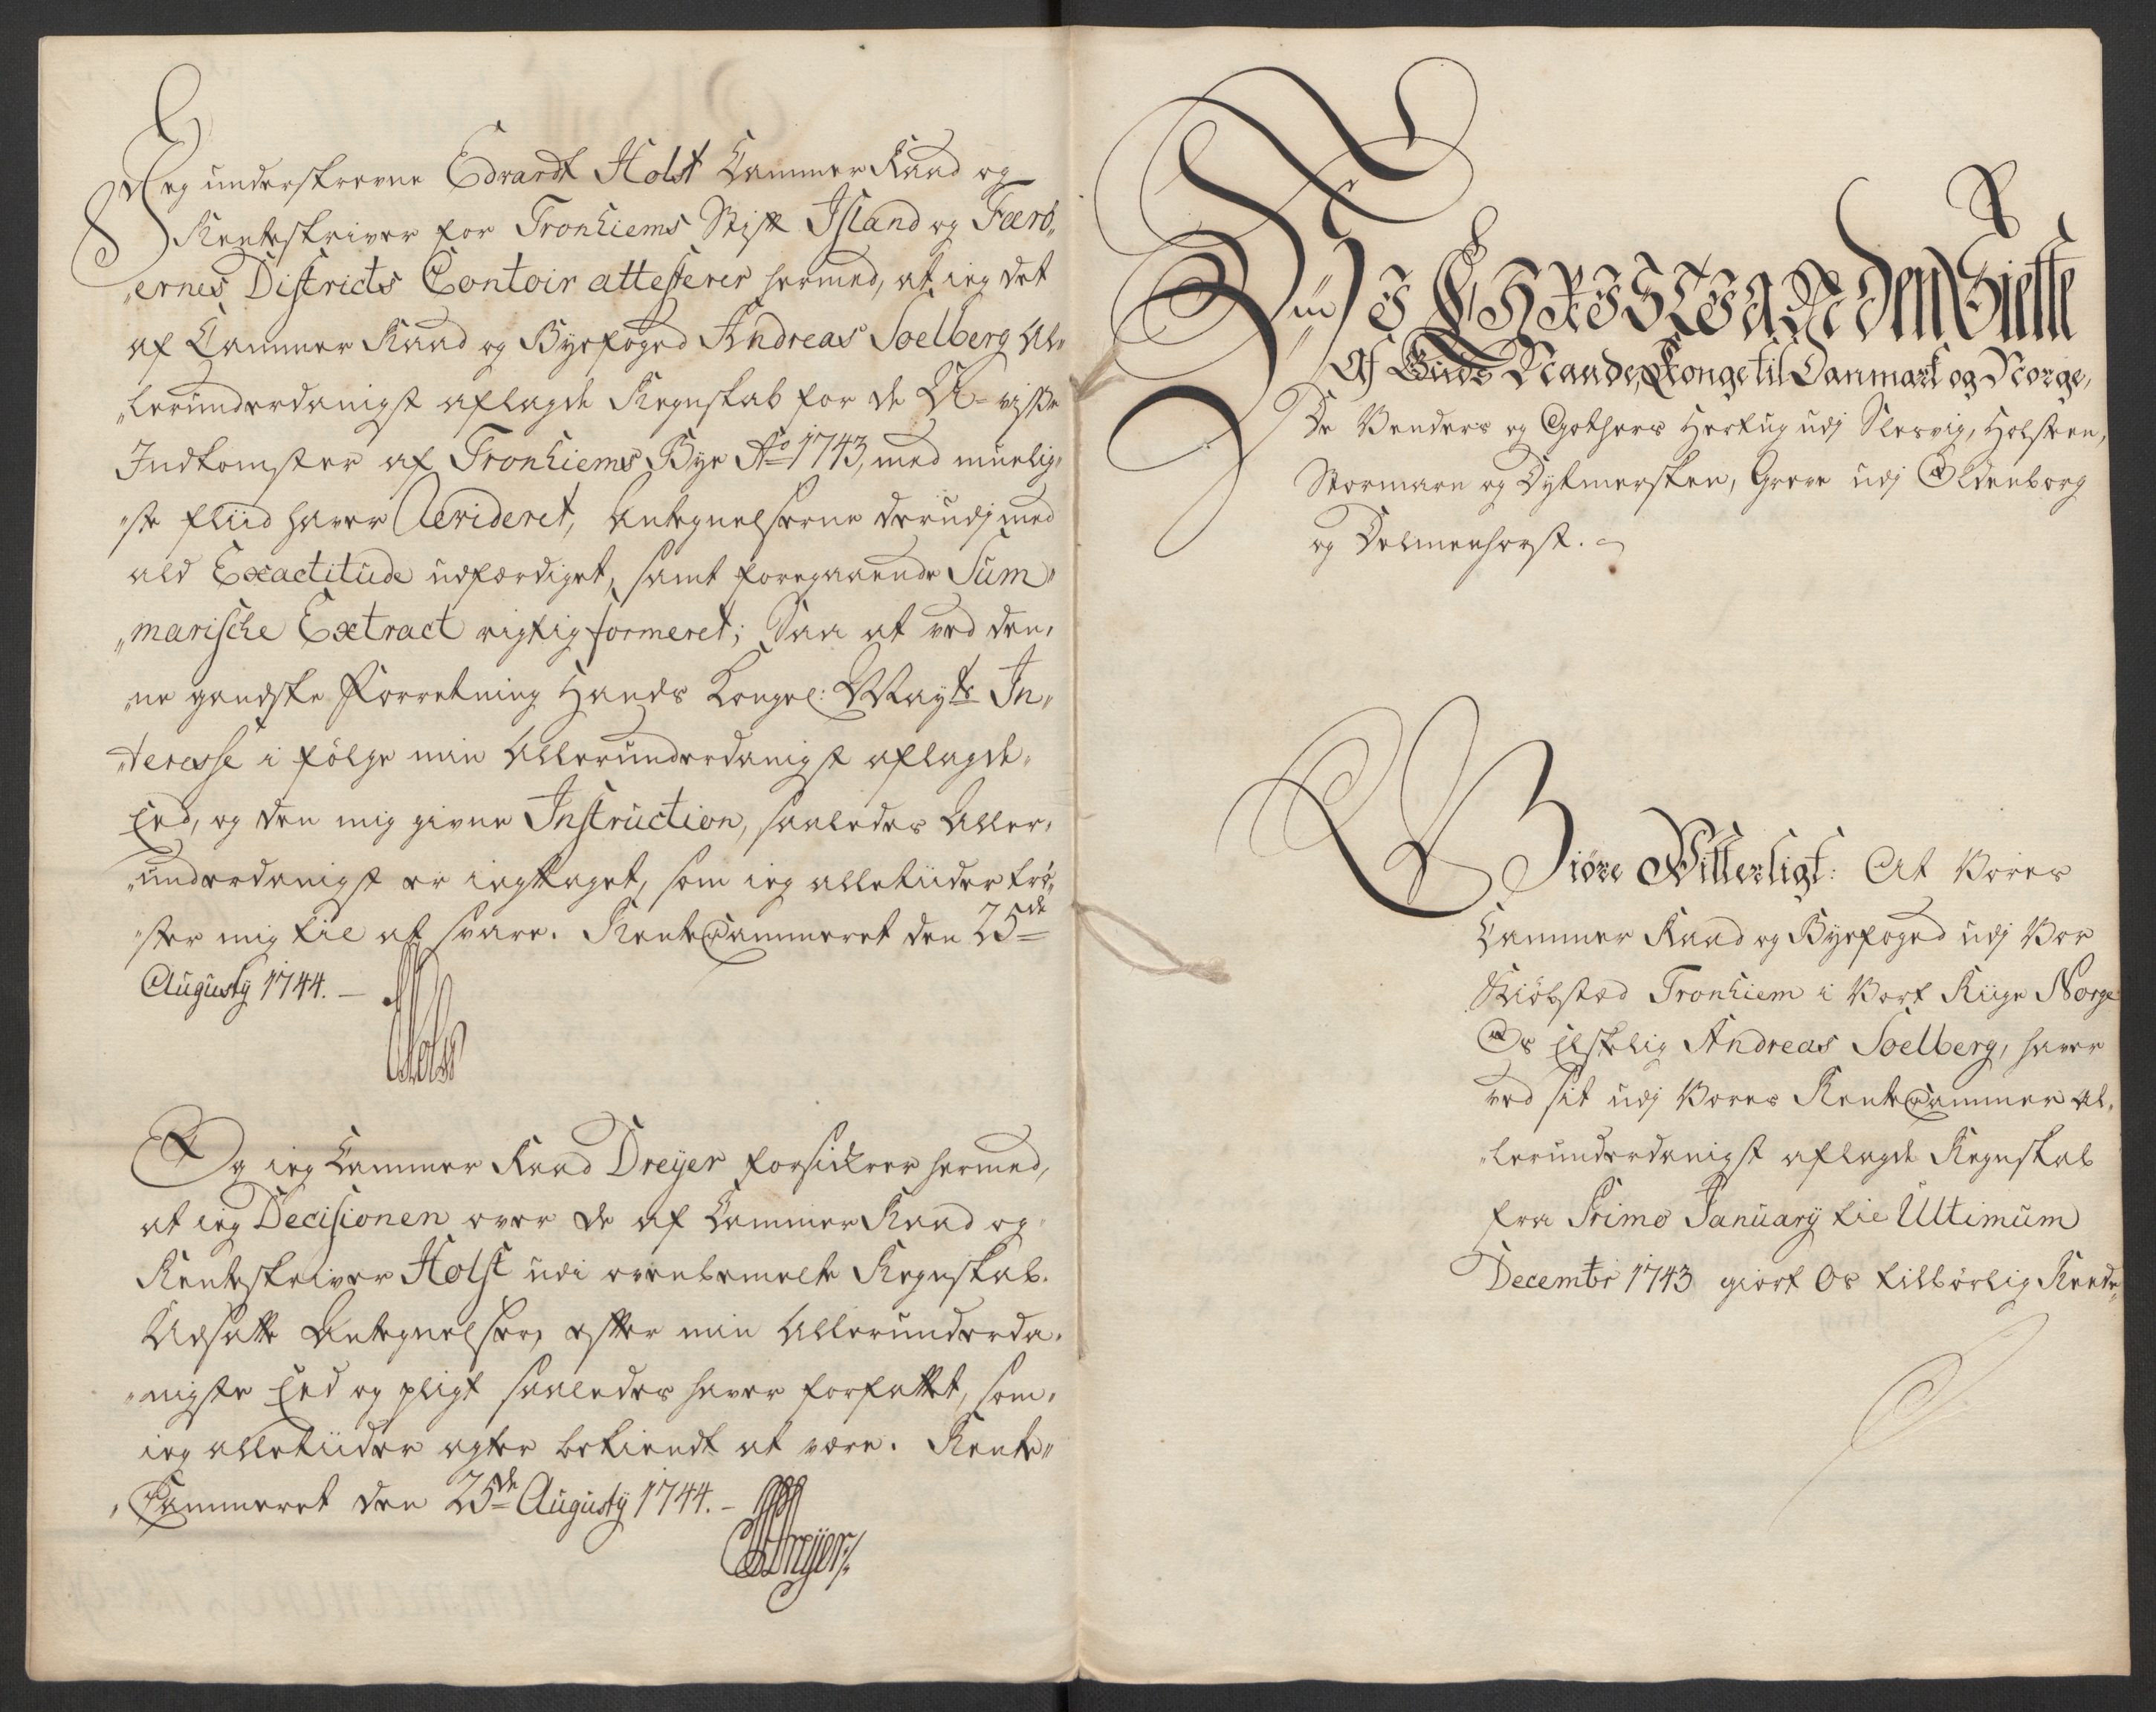 Jeg underskrevne Edvardt Holst Cammer Raad og
Renteskriver for Tronhiems Stift Island og Færö„
„ernes Districts Contoir attesterer hermed, at ieg det
af Cammer Raad og Byefoged Andreas Soelberg Al„
„lerunderdanigst aflagde Regnskab for de U-visse
Indkomster af Tronhiems Bye Ao 1743, med muelig„
„ste fliid haver Revideret, Antegnelserne derudj med
ald Exactitude udfærdiget, samt foregaaende Sum„
„marische Extract rigtig formeret; Saa at ved den„
„ne gandske Forretning Hands Kongel: Mayts In„
„teresse i fölge min Allerunderdanigst aflagde
Eed, og den mig givne Instruction, saaledes Aller„
„underdanigst er iagttaget, som ieg alletiider trö„
„ster mig til at svare. RenteCammeret den 25de
Augusty 1744. —
Holst
Og ieg Cammer Raad Dreyer forsickrer hermed,
at ieg Decisionen over de af Cammer Raad og
Renteskriver Holst udi ovenbemelte Regnskab
Udsatte Antegnelser, efter min Allerunderda„
„nigste Eed og pligt saaledes haver forfattet, som
ieg alletiider agter bekiendt at være. Rente„
„Cammeret den 25de Augusty 1744. —
Dreyer
Vii CHRISTIAN den Siette
Af Guds Naade, Konge til Danmark og Norge,
De Venders og Gothers Hertug udj Slesvig, Holsteen,
Stormarn og Dytmersken, Greve udj Oldenborg
og Delmenhorst.
Giöre Vitterligt: At Vores
Cammer Raad og Byefoged udj Vor
Kiöbsted Tronhiem i Vort Riige Norge
Os Elskelig Andreas Soelberg, haver
ved sit udj Vores RenteCammer Al„
„lerunderdanigst aflagde Regnskab
fra Primo January til Ultimum
Decembr 1743 giort Os tilbörlig Reede„